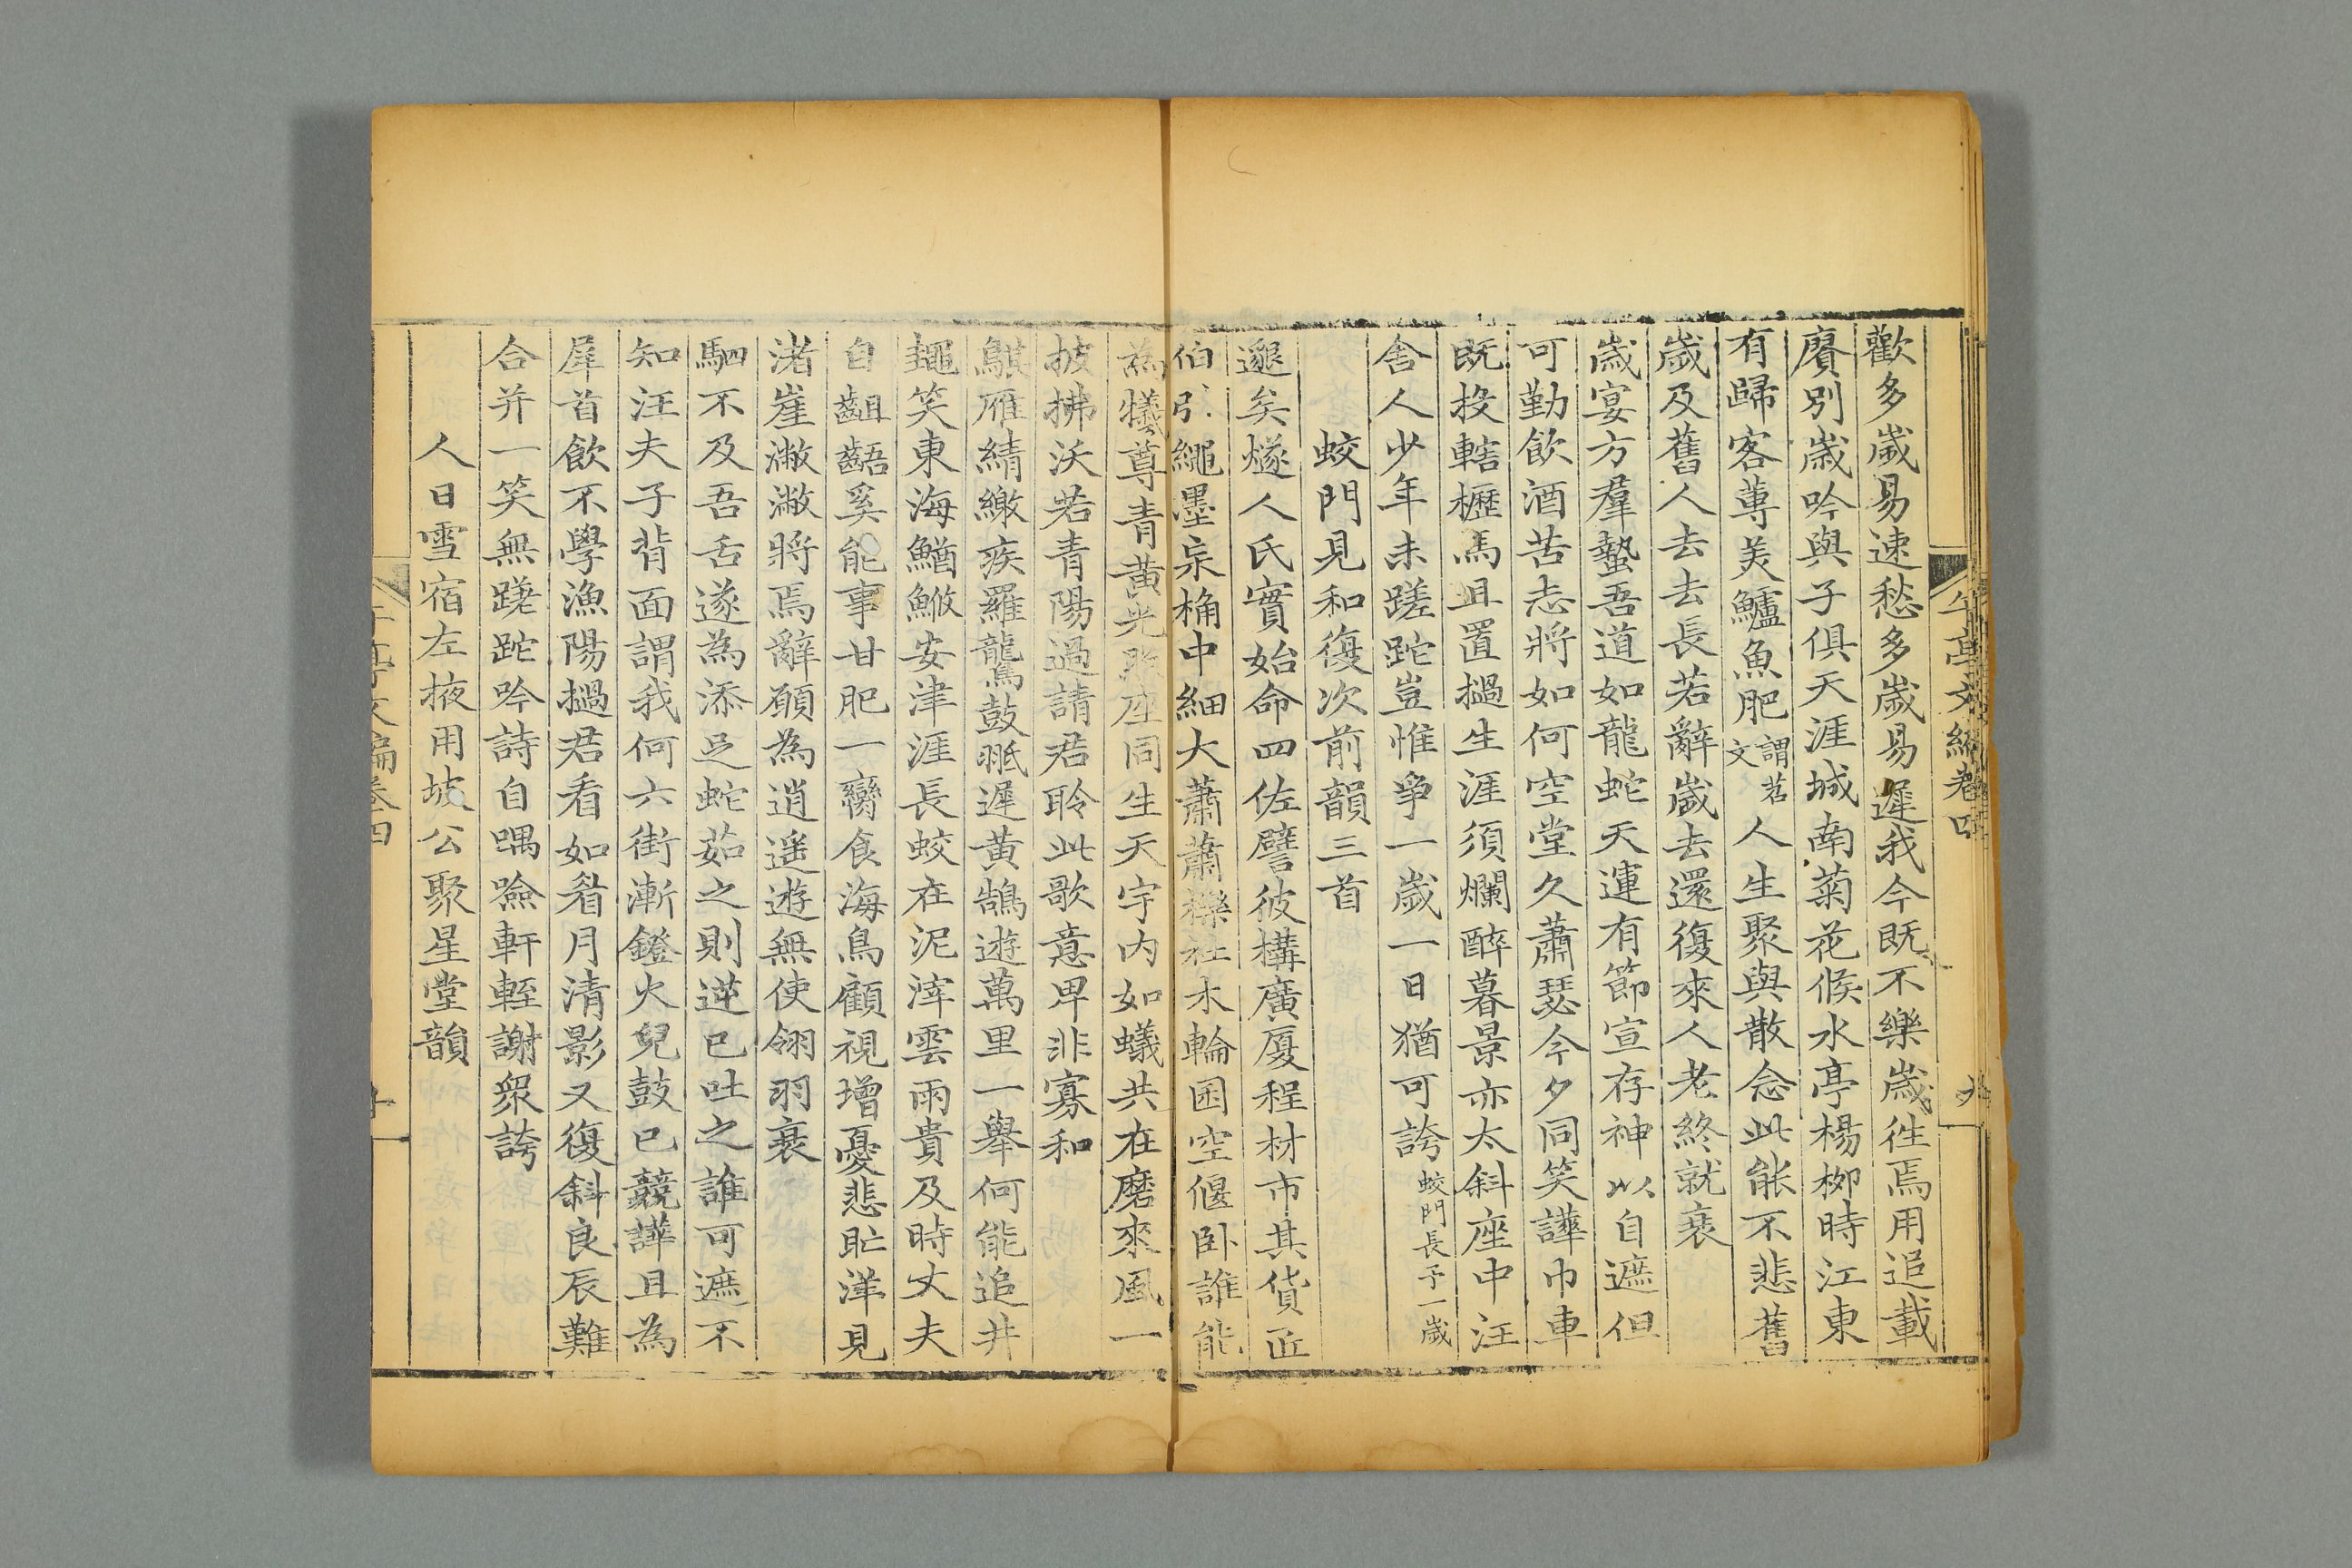 午亭文編卷四
九
歡多歲易速愁多歲易遲我今既不樂歲徃焉用追載
賡別歲吟與子俱天涯城南菊花候水亭楊柳時江東
有歸客蓴美鱸魚肥謂若文人生聚與散念此能不悲舊
歲及舊人去去長若辭歲去還復來人老終就衰
歲宴方羣蟄吾道如龍蛇天運有節宣存神以自遮但
可勤飲酒苦志將如何空堂久蕭瑟今夕同笑譁巾車
既投轄櫪馬且置撾生涯須爛醉暮景亦太斜座中汪
舍人少年未蹉跎豈惟爭一歲一日猶可誇蛟門長予一歲
蛟門見和復次前韻三首
邈矣燧人氏實始命四佐譬彼構廣廈程材市其貨匠
伯引繩墨宗桷中細大蕭蕭櫟社木輪囷空偃卧誰能
為犧尊青黃光照座同生天宇內如蟻共在磨來風一
披拂沃若青陽過請君聆此歌意卑非寡和
鶀雁綪繳疾羅鸗鼓甿遲黃鵠遊萬里一舉何能追井
䵷笑東海鰌鮁安津涯長蛟在泥滓雲雨貴及時丈夫
自齟齬奚能事甘肥一臠食海鳥顧視增憂悲盳洋見
渚崖潎潎將焉辭願為逍遥遊無使翎羽衰
駟不及吾舌遂為添足蛇茹之則逆已吐之誰可遮不
知汪夫子背面謂我何六街漸鐙火兒鼓已競譁且為
犀首飲不學漁陽撾君看如眉月清影又復斜良辰難
合并一笑無蹉跎吟詩自喁噞軒輊謝衆誇
人日雪宿左掖用坡公聚星堂韻
午亭文編卷四
十